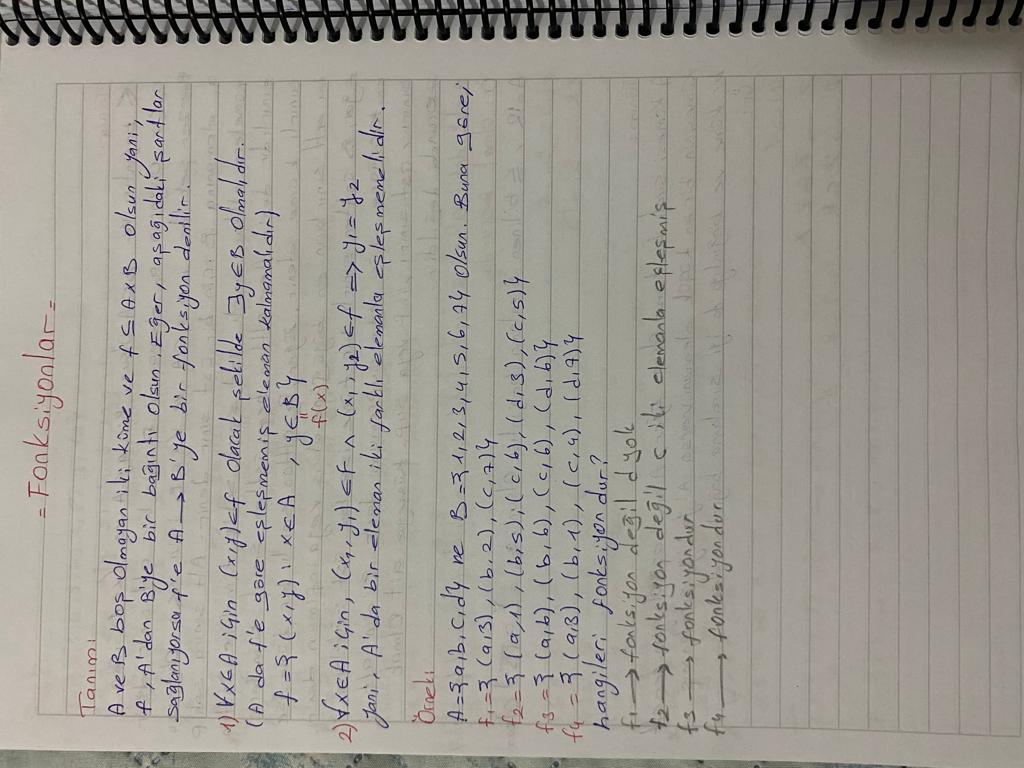 = Fonksiyonlar =
Tanım:
A ve B boş olmayan iki küme ve f ⊆ AxB olsun yani;
f, A'dan B'ye bir bağıntı olsun. Eğer, aşağıdaki şartlar
sağlanıyorsa f'e A → B'ye bir fonksiyon denilir.
1) ∀x∈A için (x,y)∈f olacak şekilde ∃y∈B olmalıdır.
(A da f'e göre eşleşmemiş eleman kalmamalıdır)
f = { (x,y) : x∈A , y∈B }
"
f(x)
2) ∀x∈A için, (x,y₁)∈f ∧ (x,y₂)∈f => y₁ = y₂
Yani, A'da bir eleman iki farklı elemanla eşleşmemelidir.
Örnek:
A={a,b,c,d} ve B={1,2,3,4,5,6,7} olsun. Buna göre;
f₁={ (a,3), (b,2), (c,7)}
f₂={ (a,1), (b,5), (c,6), (d,3), (c,5)}
f₃={ (a,6), (b,6), (c,6), (d,6)}
f₄ = { (a,3), (b,1), (c,4), (d,7)}
hangileri fonksiyondur?
f₁ → fonksiyon değil d yok
f₂ → fonksiyon değil c iki elemanla eşleşmiş
f₃ → fonksiyondur
f₄ → fonksiyondur